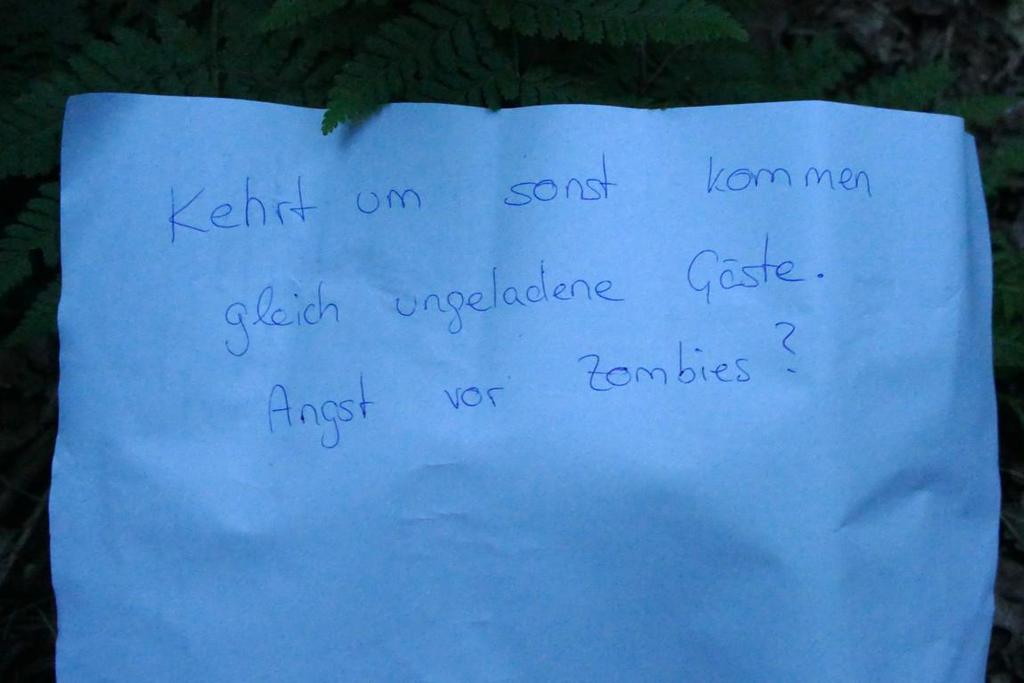 Kehrt um sonst kommen
gleich ungeladene Gäste.
Angst vor Zombies?